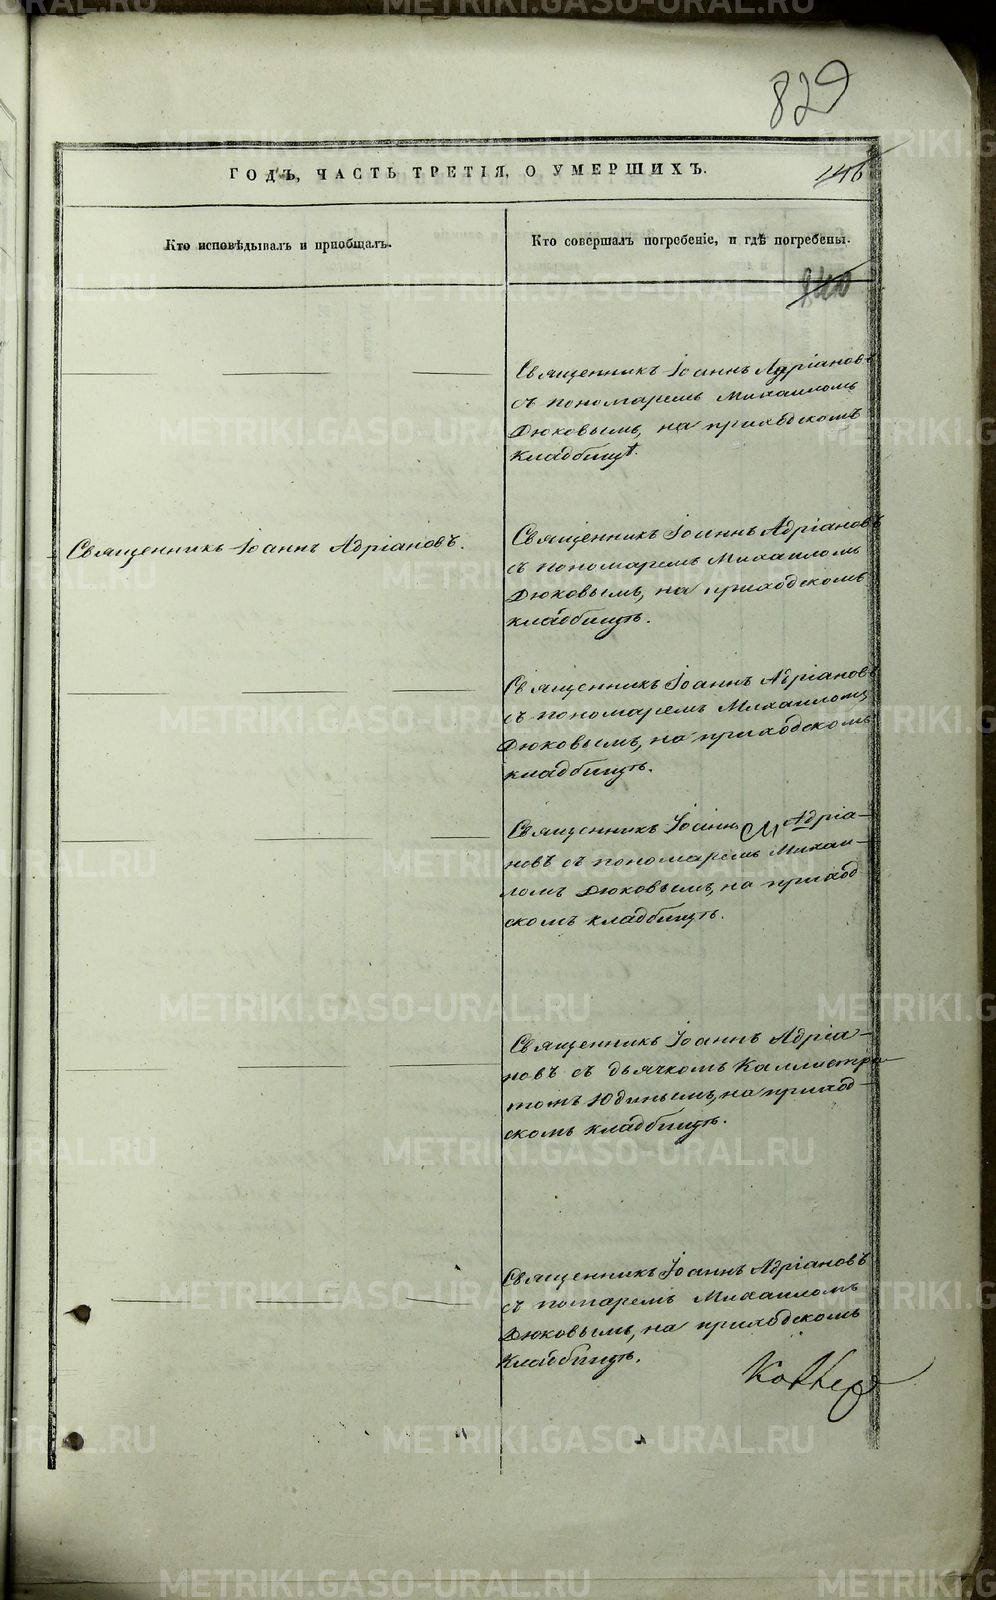 829
ГОДЪ, ЧАСТЬ ТРЕТІЯ, О УМЕРШИХЪ.
146
Кто исповѣдывалъ и пріобщалъ.
Кто совершалъ погребеніе, и гдѣ погребены.
840
Священникъ Іоаннъ Адріановъ
съ пономаремъ Михаиломъ
Дюковымъ, на приходскомъ
кладбищѣ.
Священникъ Іоаннъ Адріановъ.
Священникъ Іоаннъ Адріановъ
съ пономаремъ Михаиломъ
Дюковымъ, на приходскомъ
кладбищѣ.
Священникъ Іоаннъ Адріановъ
съ пономаремъ Михаиломъ
Дюковымъ, на приходскомъ
кладбищѣ.
Священникъ Іоаннъ Адріа-
новъ съ пономаремъ Михаи-
ломъ Дюковымъ, на приход
скомъ кладбищѣ.
Священникъ Іоаннъ Адріа-
новъ съ дьячкомъ Каллистра-
томъ Юдинымъ, на приход-
скомъ кладбищѣ.
Священникъ Іоаннъ Адріановъ
съ помаремъ Михаиломъ
Дюковымъ, на приходскомъ
кладбищѣ.
METRIKI.GASO-URAL.RU